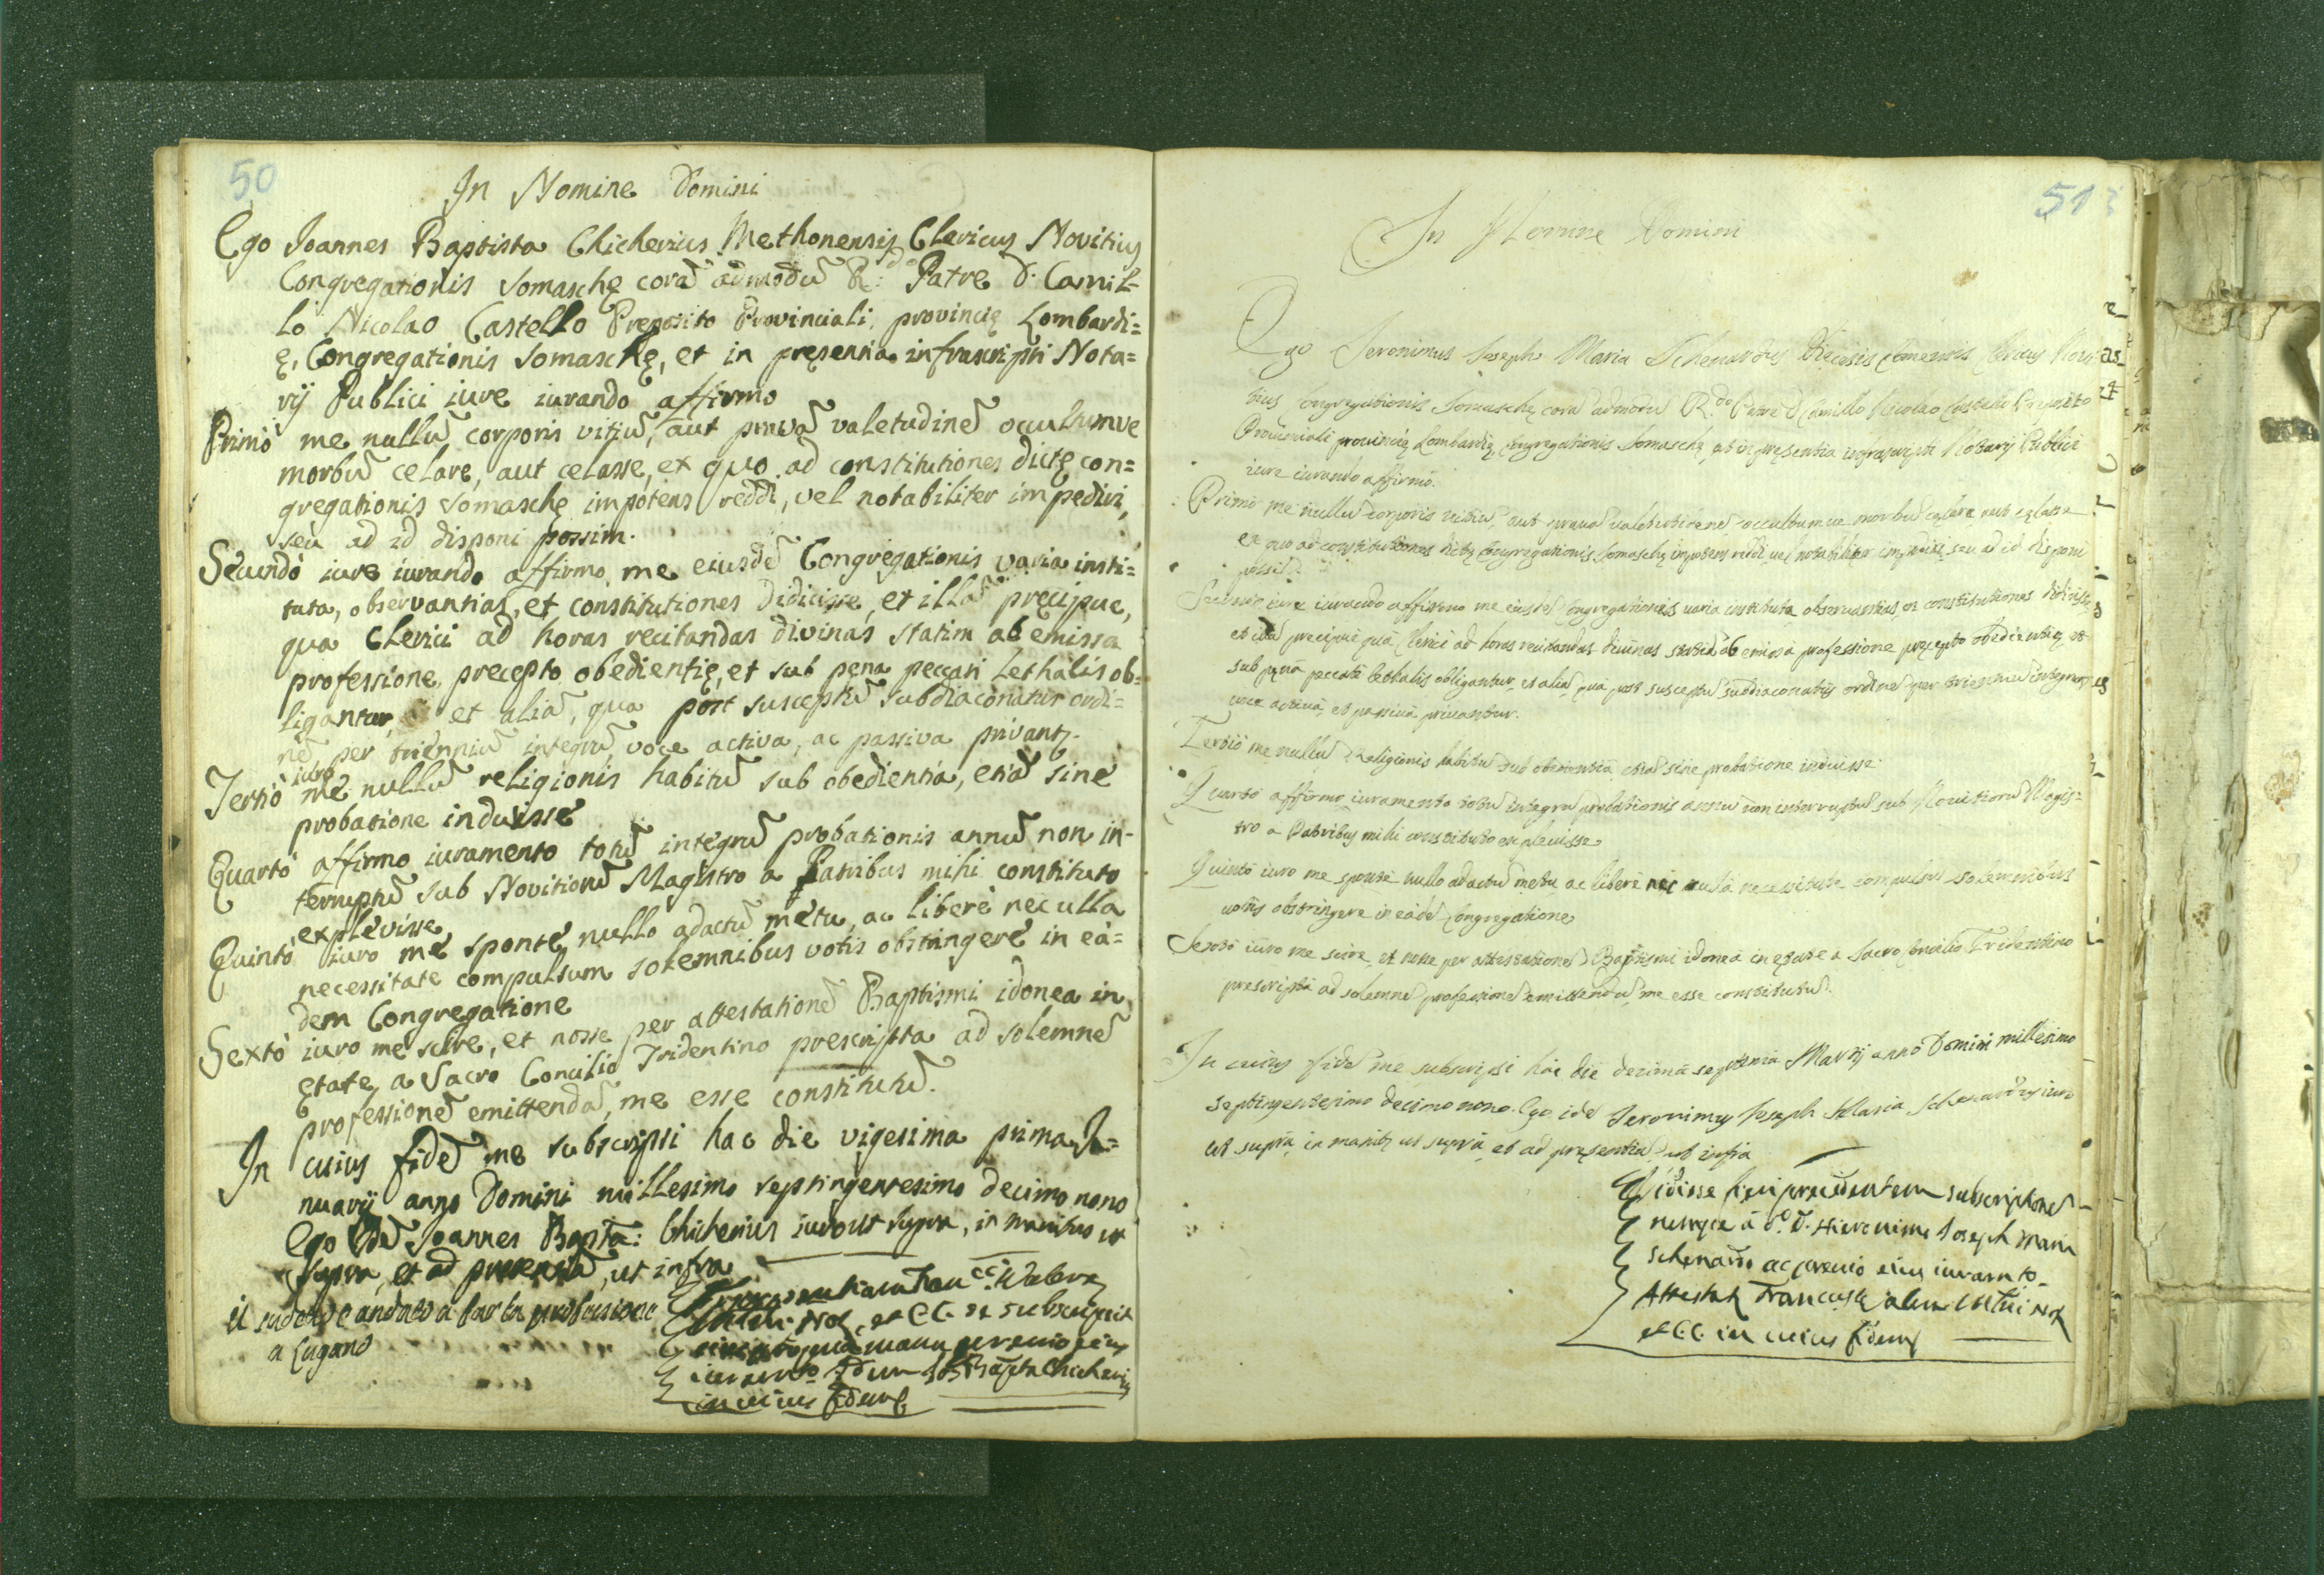 50
In Nomine Domini
Ego Joannes Baptista Chicherius Methonensis Clericus Novitius
Congregationis Somaschę corã admodũ R:do Patre D. Camil=
lo Nicolao Castello Preposito Provinciali, provincię Lombardi=
ę, Congregationis Somaschę, et in pręsentia infrascripti Nota=
rij Publici iure iurando affirmo
Primò me nullũ corporis vitiũ, aut pravã valetudinẽ occultumve
morbũ celare, aut celasse, ex quo ad constitutiones dictę con=
gregationis Somaschę impotens reddi, vel notabiliter impediri,
seù ad id disponi possim.
Secundò iure iurando affirmo me eiusdẽ Congregationis varia insti=
tuta, observantias, et constitutiones didicisse, et illã precipue,
qua Clerici ad horas recitandas divinas statim ab emissa
professione, precepto obedientię, et sub pena peccati lethalis ob=
ligantur, et aliã, qua post susceptũ subdiaconatus ordi=
nẽ per trienniũ integrũ voce activa, ac passiva privantʒ.
iuro
Tertiò me nullũ religionis habitũ sub obedientia, etiã sine
probatione induisse
Quartò affirmo iuramento totũ integrũ probationis annũ non in-
terruptũ sub Novitiorũ Magistro a Patribus mihi constituto
explevisse
Quintò iuro me sponte, nullo adactũ metu, ac liberè nec ulla
necessitate compulsum solemnibus votis obstringere in eà=
dem Congregatione
Sextò iuro me scire, et nosse per attestationẽ Baptismi idonea in
ętate a Sacro Concilio Tridentino prescripta ad solemnẽ
professionẽ emittendã, me esse constitutũ.
In cuius fidẽ me subscripsi hac die vigesima prima Ja=
nuarij anno Domini millesimo septingentesimo decimo nono
Ego idẽ Joannes Bapta: Chicherius iuro ut supra, in manibus ut
supra, et ad presentiã, ut infra
il sudetto è andato a far la professione
a Lugano
et C.C. se subscripsit
manu previo eius
Bapta Chicherius
in cuius fidem
513
In Nomine Domini
Ego Jeronimus Joseph Maria Schenardus Diecesis Comensis Clericus Novi=
tius Congregationis Somaschę corã admodũ R.do Patre D Camillo Nicolao Castello Preposito
Provinciali provincię Lombardię, Congregationis Somaschę, et in pręsentia infrascripti Notarij Publici
iure iurando affirmo.
Primò me nullũ corporis vitiũ, aut pravã valetudinẽ occultumve morbũ celare aut celasse
ex quo ad constitutiones dictę Congregationis Somaschę impotens reddi, vel notabiliter impediri, seu ad id disponi
possim
Secundò iure iurando affirmo me eiusdẽ Congregationis varia instituta observantias, et constitutiones didicisse
et illã precipuè quã Clerici ad horas recitandas divinas statim ab emissa professione precepto obedientię et
sub pęnã peccati lethalis obligantur, et aliã quã post susceptũ subdiaconatus ordinẽ per trienniũ integrum
voce activã, et passivã privantur.
Tertiò me nullũ Religionis habitũ sub obedientiã etiã sine probatione induisse
Quartò affirmo iuramento totũ integrũ probationis annũ non interruptũ sub Novitiorũ Magis=
tro a Patribus mihi constituto explevisse
Quintò iuro me sponte nullo adactũ metu ac liberè nec nulla necessitate compulsũ solemnibus
votis obstringere in eadẽ Congregatione
Sextò iuro me scire, et nosse per attestationẽ Baptismi idoneã in ętate a Sacro Concilio Tridentino
prescriptã ad solemnẽ professionẽ emittendã, me esse constitutũ.
In cuius fidẽ me subscripsi hac die decimã septimã Martij anno Domini millesimo
septingentesimo decimo nono. Ego idẽ Jeronimus Joseph Maria Schenardus iuro
ut suprà in manibʒ ut suprà et ad pręsentiã ut infra
Vidisse fieri precedentem subscriptionẽ
a d.o D. Hieronimo Joseph Maria
Schenardo ac previo eius iuramto
Attestatʒ Franciscus Not
et C.C. in cuius fidem